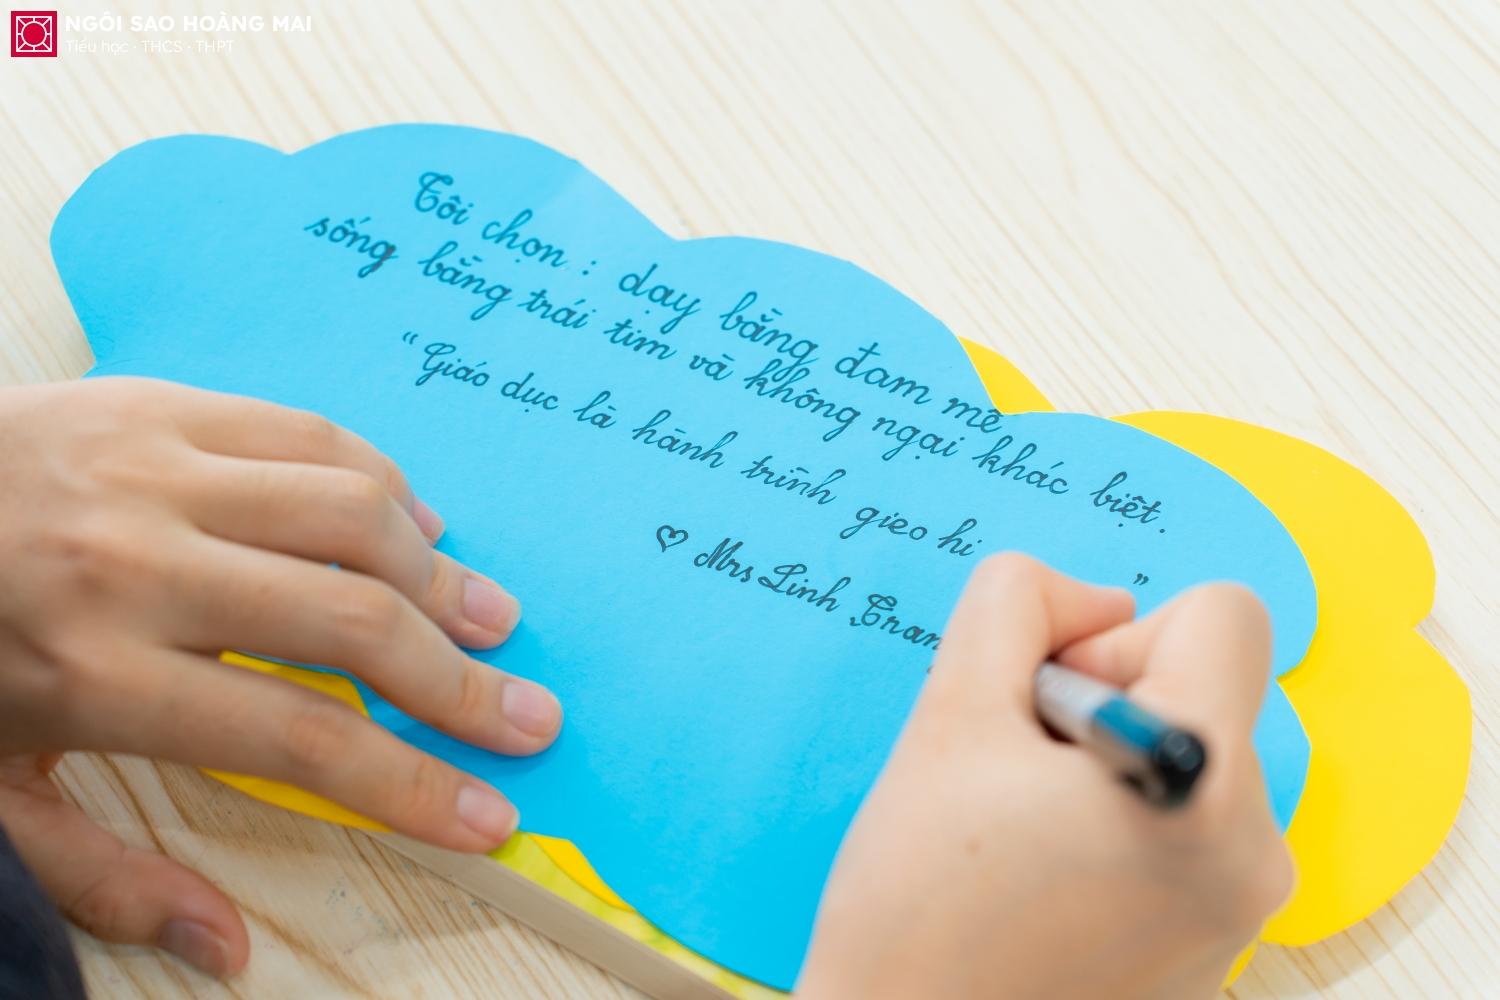 NGÔI SAO HOÀNG MAI
Tiểu học · THCS · THPT
Tôi chọn : dạy bằng đam mê
sống bằng trái tim và không ngại khác biệt.
"Giáo dục là hành trình gieo hi "
♡ Mrs Linh Tran